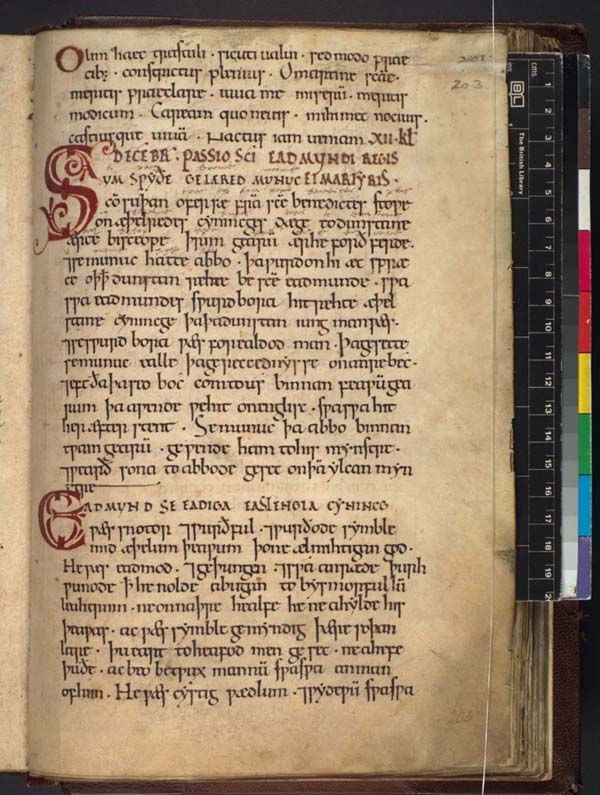 Olim haec trastuli · sicuti ualui · sed modo precie
cib; · constrictus pleniter · O martine sc̄e ·
meritis praeclare · iuua me miserū · meritis
modicum · Caream quo neuis · mihimet nocuus ·
castiusque uiuā · Nactus iam ueniam XII · KL̄
DECEBR̄ · PASSIO SC̄I EADMUNDI REGIS
SUM SWYÐE GELÆRED MUNUC ET MARTYRIS ·
cō suþan ofer sæ frā sc̄e benedictes stope
on æþelredes cynincges dæge to dunstane
ærce bisceope þrim gearū ær he forð ferde ·
⁊ se munuc hatte abbo · þa wurdon hi æt spræ
ce oþþ dunstan rehte be sc̄e eadmunde · swa
swa eadmundes swurd bora hit rehte æþel
stane cynincge þa þa dunstan iung man wæs ·
⁊ se swurd bora wæs forealdod man · þa gesette
se munuc ealle þa gereccednysse on anre bec ·
⁊ eft ða þa seo boc com to us binnan feawū gea
rum þa awende we hit on englisc · swa swa hit
her æfter stent · Se munuc þa abbo binnan
twam gearū · gewende ham to his mynstre ·
⁊ wearð sona to abbode geset on þā ylcan myn
stre
EADMUND SE EADIGA EASTENGLA CYNINCG
wæs snotor ⁊ wurðful · ⁊ wurðode symble
mid æþelum þeawum þone ælmihtigan god ·
He wæs eadmod · ⁊ geþungen · ⁊ swa anræde þurh
wunode ꝥ he nolde abugan to bysmorfullū
leahtrum · ne on naþre healfe he ne ahylde his
þeawas · ac wæs symble gemyndig þære soþan
lare · þu eart to heafod men geset · ne ahefe
þu ðe · ac beo betwux mannū swa swa an man
of him · He wæs cystig wædlum · ⁊ wydewū swa swa
203
The British Library
BL
cms
1
2
3
4
5
6
7
8
9
10
11
12
13
14
15
16
17
18
19